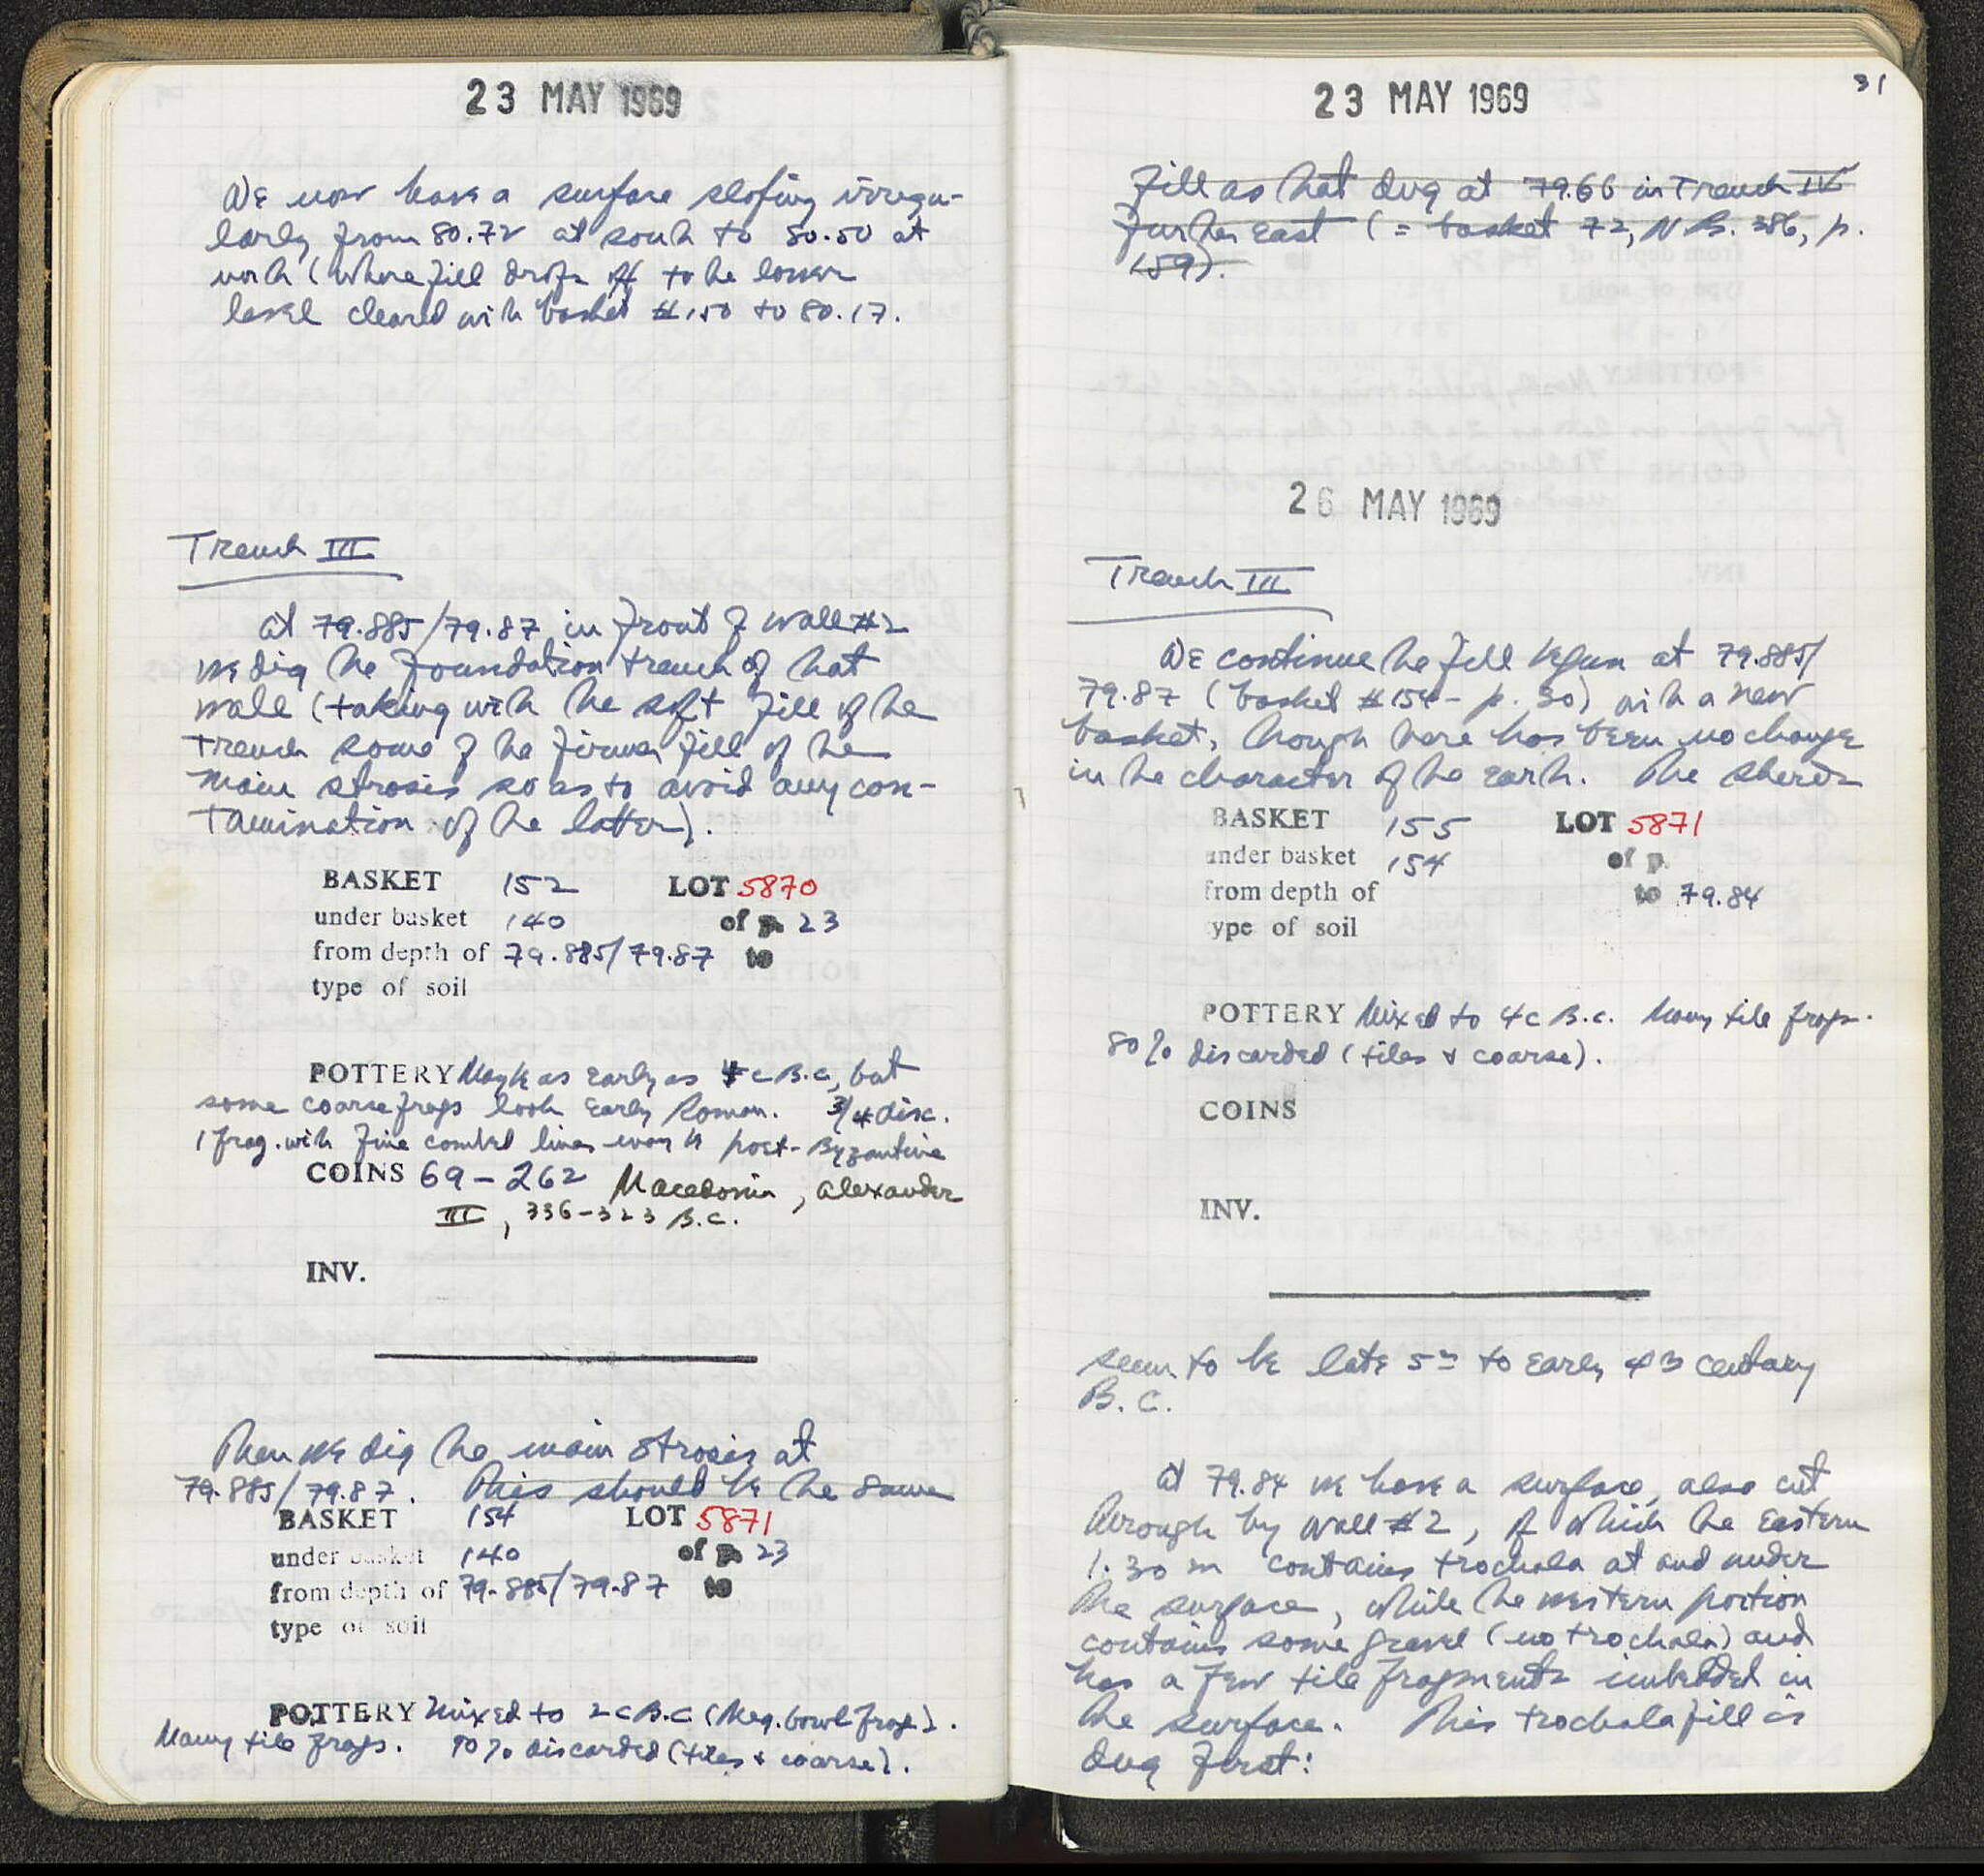 23 MAY 1969
We now have a surface sloping irregu-
larly from 80.72 at south to 80.50 at
north (where fill drops off to the lower
level cleared with basket #150 to 80.17.
Trench III
At 79.885/79.87 in front of wall #2
we dig the foundation trench of that
wall (taking with the soft fill of the
trench some of the firmer fill of the
main strosis so as to avoid any con-
tamination of the latter).
BASKET 152 LOT 5870
under basket 140 of p. 23
from depth of 79.885/79.87 to
type of soil
POTTERY May be as early as 4 c B.C., but
some coarse frags look Early Roman. 3/4 disc.
1 frag. with fine combed lines may be post-Byzantine
COINS 69-262 Macedonia, Alexander
III, 336-323 B.C.
INV.
Then we dig the main strosis at
79.885/79.87. This should be the same
BASKET 154 LOT 5871
under basket 140 of p. 23
from depth of 79.885/79.87 to
type of soil
POTTERY Mixed to 2 c B.C. (Meg. bowl frag).
Many tile frags. 90% discarded (tiles & coarse).
31
23 MAY 1969
fill as that dug at 79.66 in Trench IV
further east (= basket 72, NB. 386, p.
159).
26 MAY 1969
Trench III
We continue the fill begun at 79.885/
79.87 (basket #154 - p. 30) with a new
basket, though there has been no change
in the character of the earth. The sherds
BASKET 155 LOT 5871
under basket 154 of p.
from depth of to 79.84
type of soil
POTTERY Mixed to 4 c B.C. Many tile frags.
80% discarded (tiles & coarse).
COINS
INV.
seem to be late 5th to early 4th century
B.C.
At 79.84 we have a surface, also cut
through by wall #2, of which the eastern
1.30 m contains trochala at and under
the surface, while the western portion
contains some gravel (no trochala) and
has a few tile fragments imbedded in
the surface. This trochala fill is
dug first: